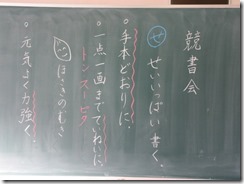 競書会
ぜ せいいっぱい書く。
。手本どおりに、
。一点一画までていねいに、
トンスーピタ
ほさきのむき
。元気よく力強く。